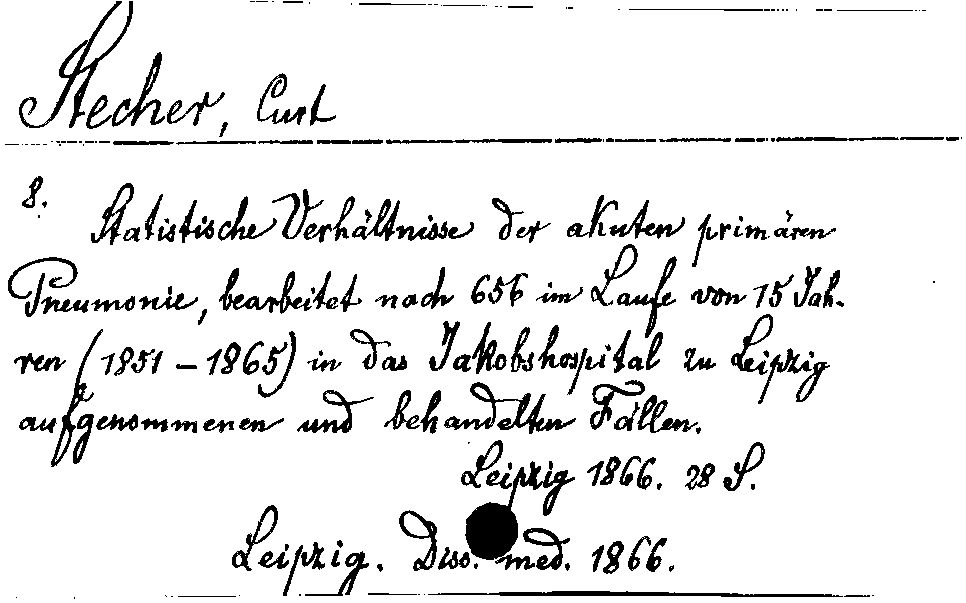 Stecher, Curt
8.
Statistische Verhältnisse der akuten primären
Pneumonie, bearbeitet nach 656 im Laufe von 15 Jah-
ren (1851 - 1865) in das Jakobshospital zu Leipzig
aufgenommenen und behandelten Fällen.
Leipzig 1866. 28 S.
Leipzig. Diss. med. 1866.